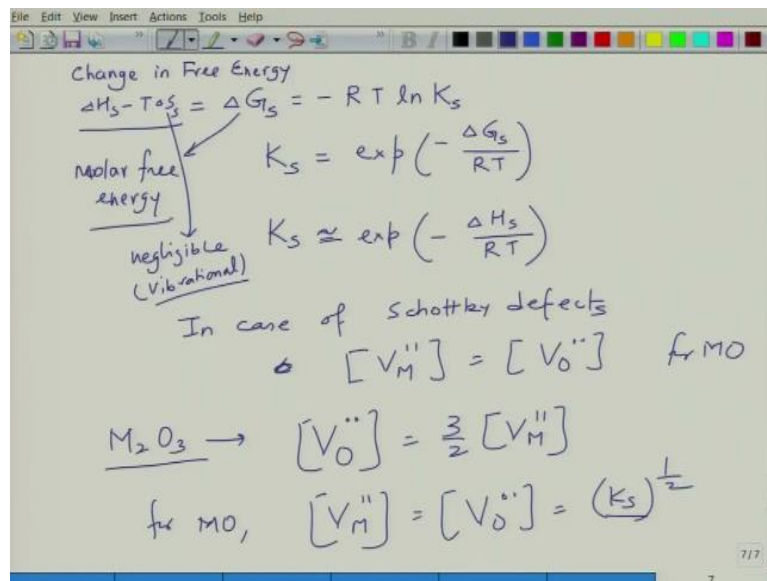 File Edit View Insert Actions Tools Help
Change in Free Energy
ΔHs - TΔSs = ΔGs = - RT ln Ks
Molar free energy
Ks = exp(- ΔGs/RT)
negligible (vibrational)
Ks ≃ exp(- ΔHs/RT)
In case of Schottky defects
[V_M''] = [V_O^··] for MO
M2O3 → [V_O^··] = 3/2 [V_M'']
for MO, [V_M''] = [V_O^··] = (Ks)^1/2
7/7
7